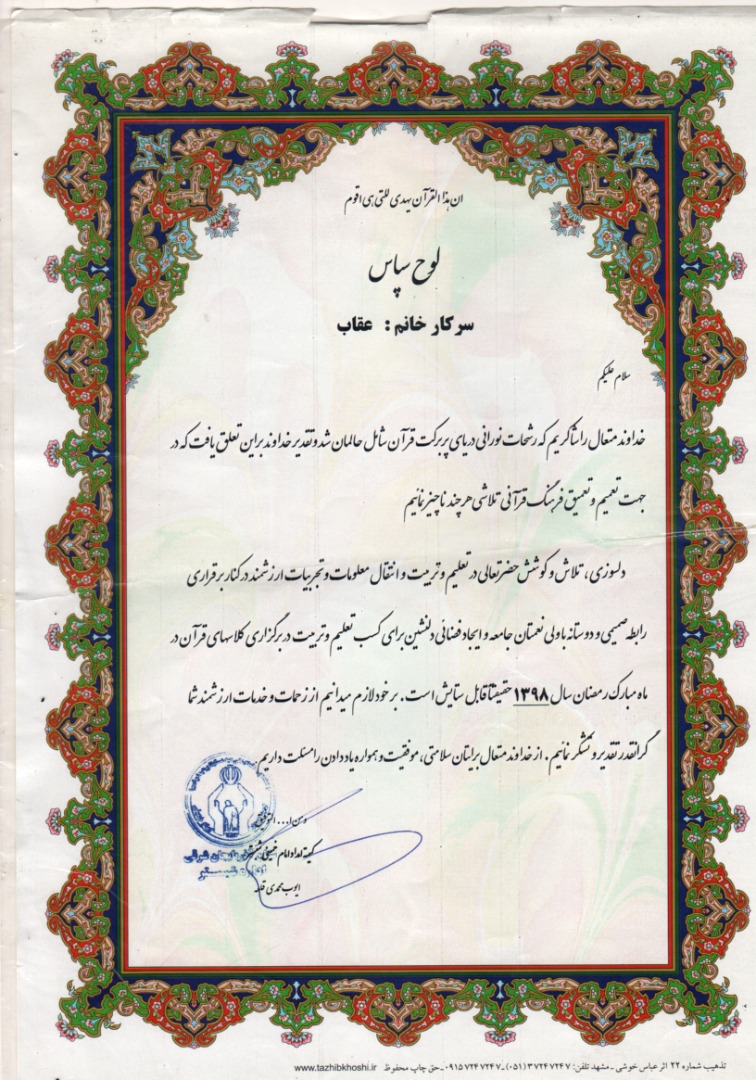 ان هذا القرآن یهدی للتی هی اقوم
لوح سپاس
سرکار خانم : عقاب
سلام علیکم
خداوند متعال را شاکریم که رشحات نورانی دریای پر برکت قرآن شامل حالمان شد و تقدیر خداوند بر این تعلق یافت که در
جهت تعمیم و تعمیق فرهنگ قرآنی تلاشی هر چند ناچیز نمائیم
دلسوزی ، تلاش و کوشش حضرتعالی در تعلیم و تربیت و انتقال معلومات و تجربیات ارزشمند در کنار برقراری
رابطه صمیمی و دوستانه با ولی نعمتان جامعه و ایجاد فضائی دلنشین برای کسب تعلیم و تربیت در برگزاری کلاسهای قرآن در
ماه مبارک رمضان سال ۱۳۹۸ حقیقتاً قابل ستایش است . بر خود لازم میدانیم از زحمات و خدمات ارزشمند شما
گرانقدر تقدیر و تشکر نمائیم . از خداوند متعال برایتان سلامتی ، موفقیت و همواره یاد دادن را مسئلت داریم .
و من ا... التوفیق
کمیته امداد امام خمینی شبستر
شبستر
ایوب محمدی قلعه
تذهیب شماره ۲۲ اثر عباس خوشی - مشهد تلفن: ۳۷۲۴۷۲۴۷ (۰۵۱) - ۰۹۱۵۷۲۴۷۲۴۷ - حق چاپ محفوظ www.tazhibkhoshi.ir